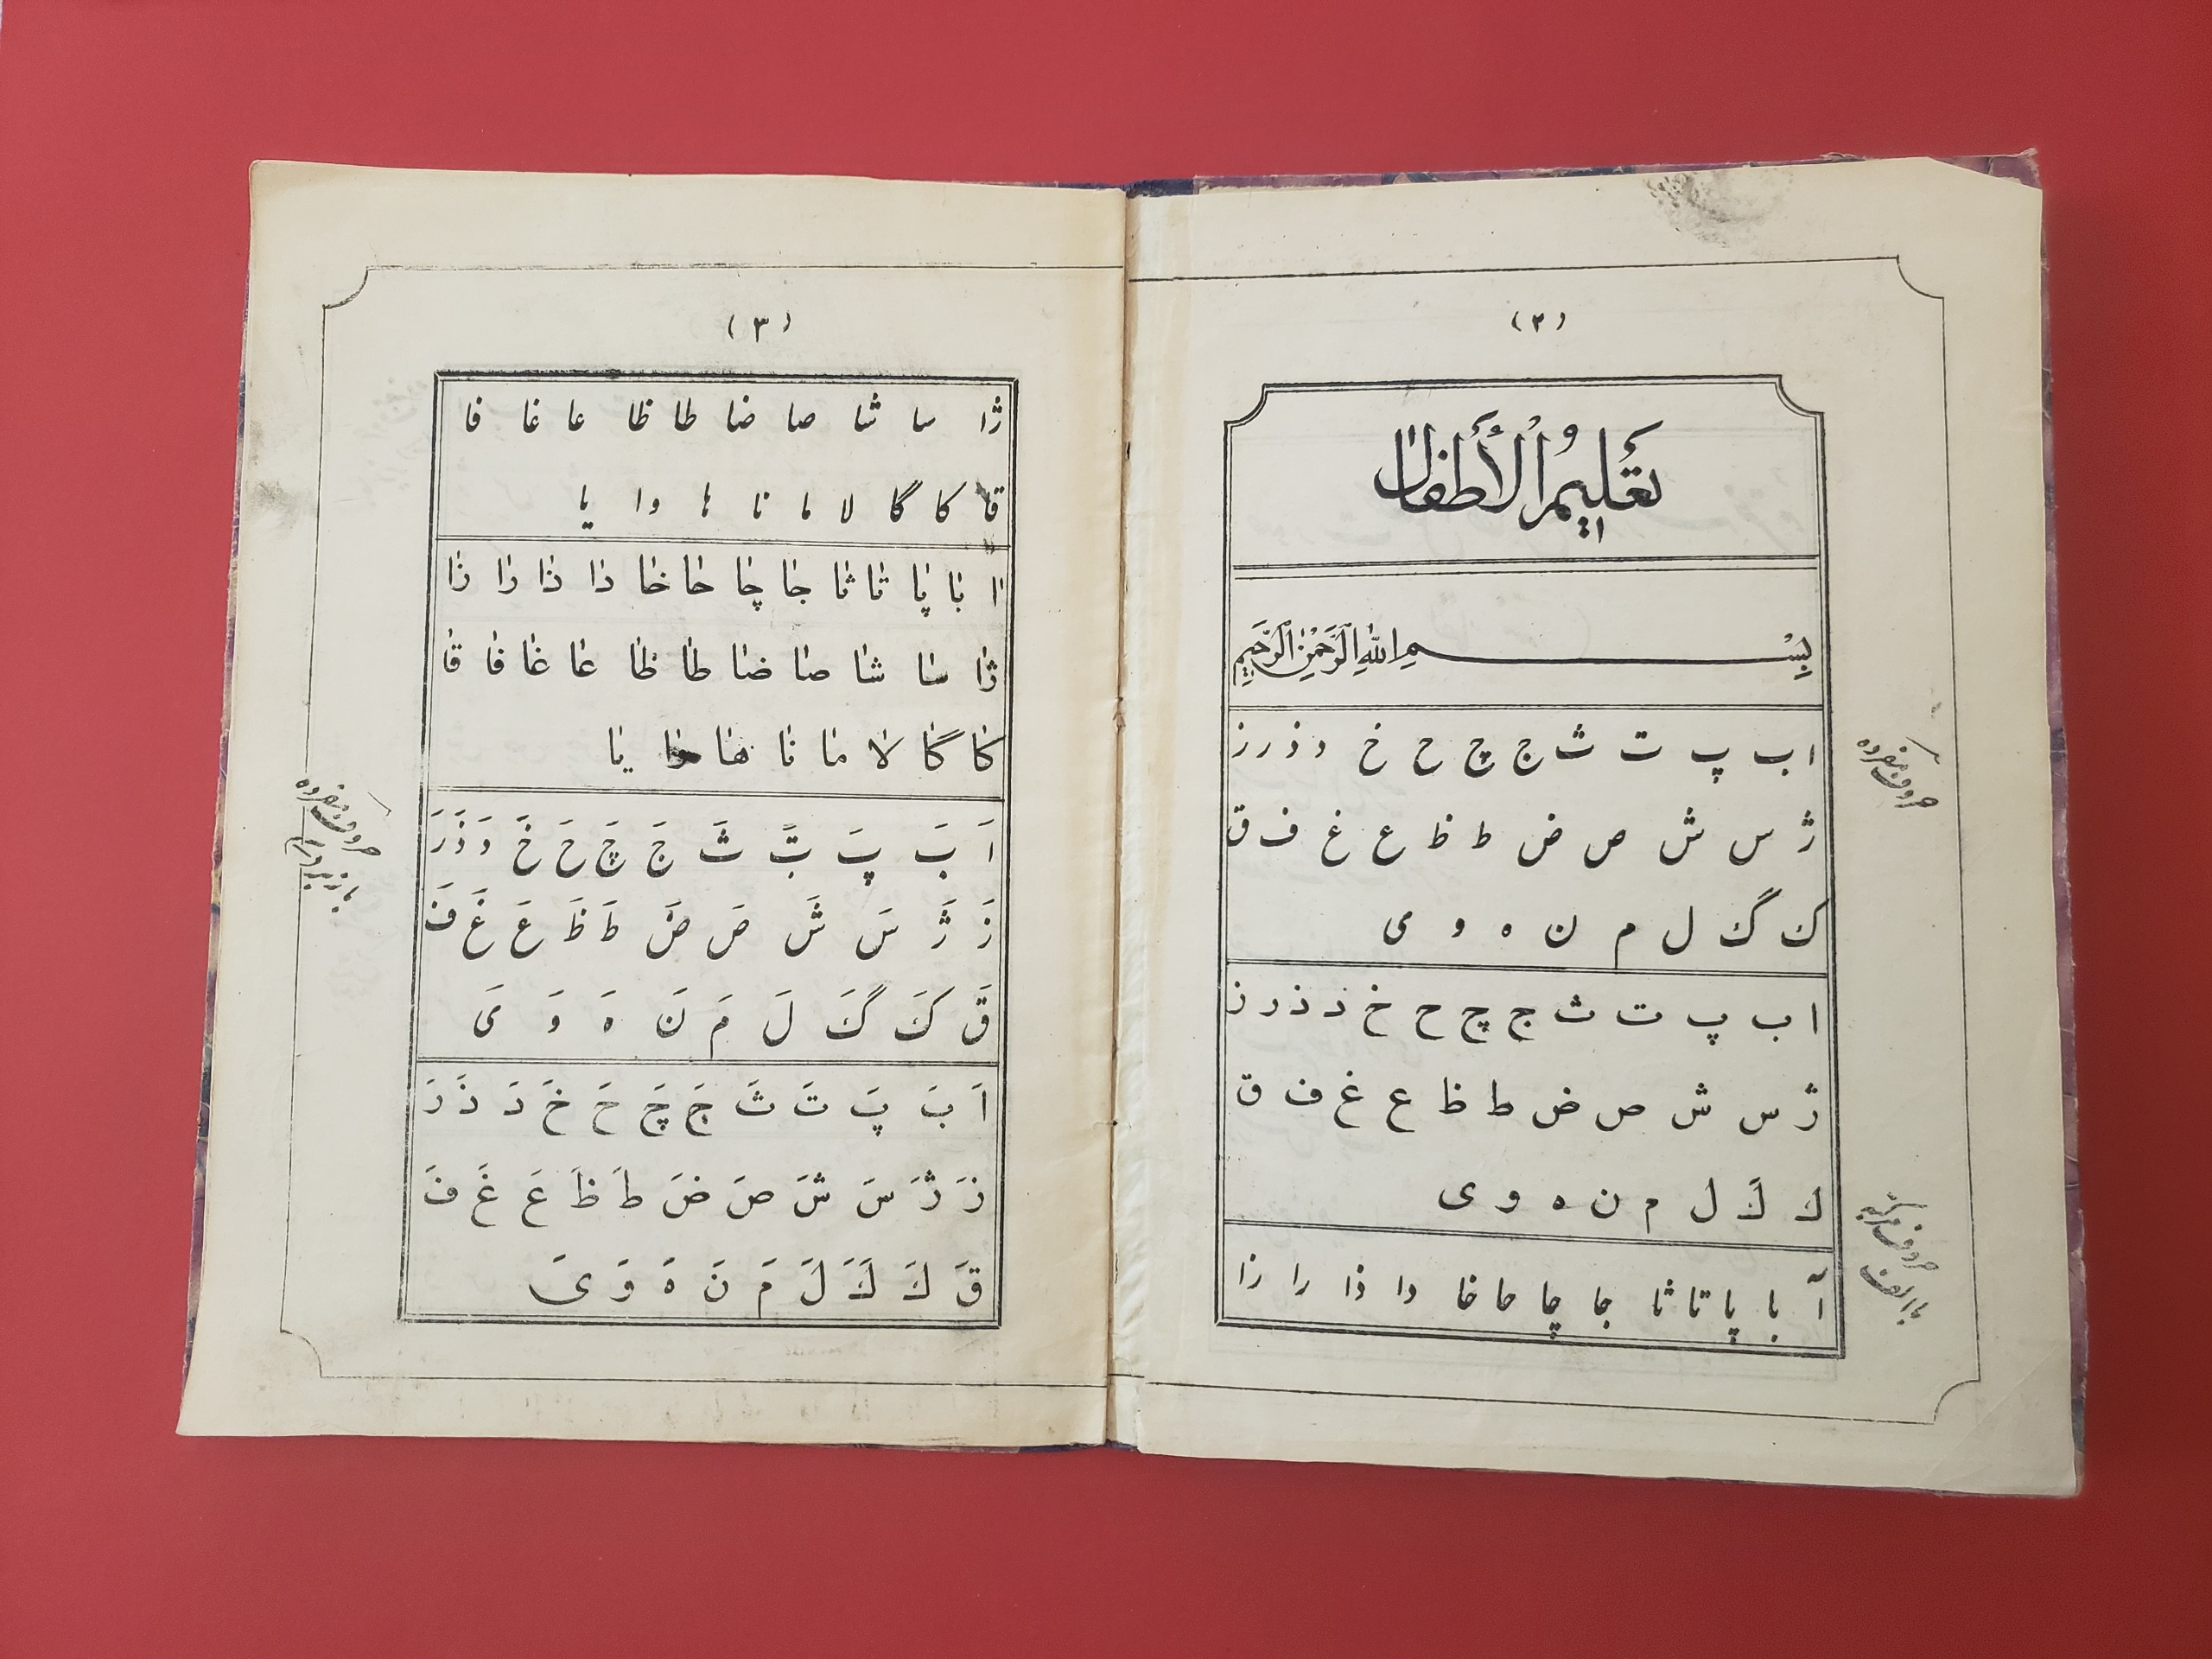 (۲)
تَعْلِيمُ الْأَطْفَالْ
بِسْمِ اللهِ الرَّحْمٰنِ الرَّحِيمِ
ا ب پ ت ث ج چ ح خ د ذ ر ز
ژ س ش ص ض ط ظ ع غ ف ق
ک گ ل م ن ه و ی
حروف مفرده
ا ب پ ت ث ج چ ح خ د ذ ر ز
ژ س ش ص ض ط ظ ع غ ف ق
ك ڭ ل م ن ه و ی
آ با پا تا ثا جا چا حا خا دا ذا را زا
حروف مرکبه
با الف
(۳)
ژا سا شا صا ضا طا ظا عا غا فا
قا کا گا لا ما نا ها وا یا
اٰ باٰ پاٰ تاٰ ثاٰ جاٰ چاٰ حاٰ خاٰ داٰ ذاٰ راٰ زاٰ
ژاٰ ساٰ شاٰ صاٰ ضاٰ طاٰ ظاٰ عاٰ غاٰ فاٰ قاٰ
کاٰ گاٰ لاٰ ماٰ ناٰ هاٰ واٰ یاٰ
اَ بَ پَ تَ ثَ جَ چَ حَ خَ دَ ذَ رَ
زَ ژَ سَ شَ صَ ضَ طَ ظَ عَ غَ فَ
قَ کَ گَ لَ مَ نَ هَ وَ یَ
حروف مفرده
اَ بَ پَ تَ ثَ جَ چَ حَ خَ دَ ذَ رَ
زَ ژَ سَ شَ صَ ضَ طَ ظَ عَ غَ فَ
قَ كَ ڭَ لَ مَ نَ هَ وَ یَ